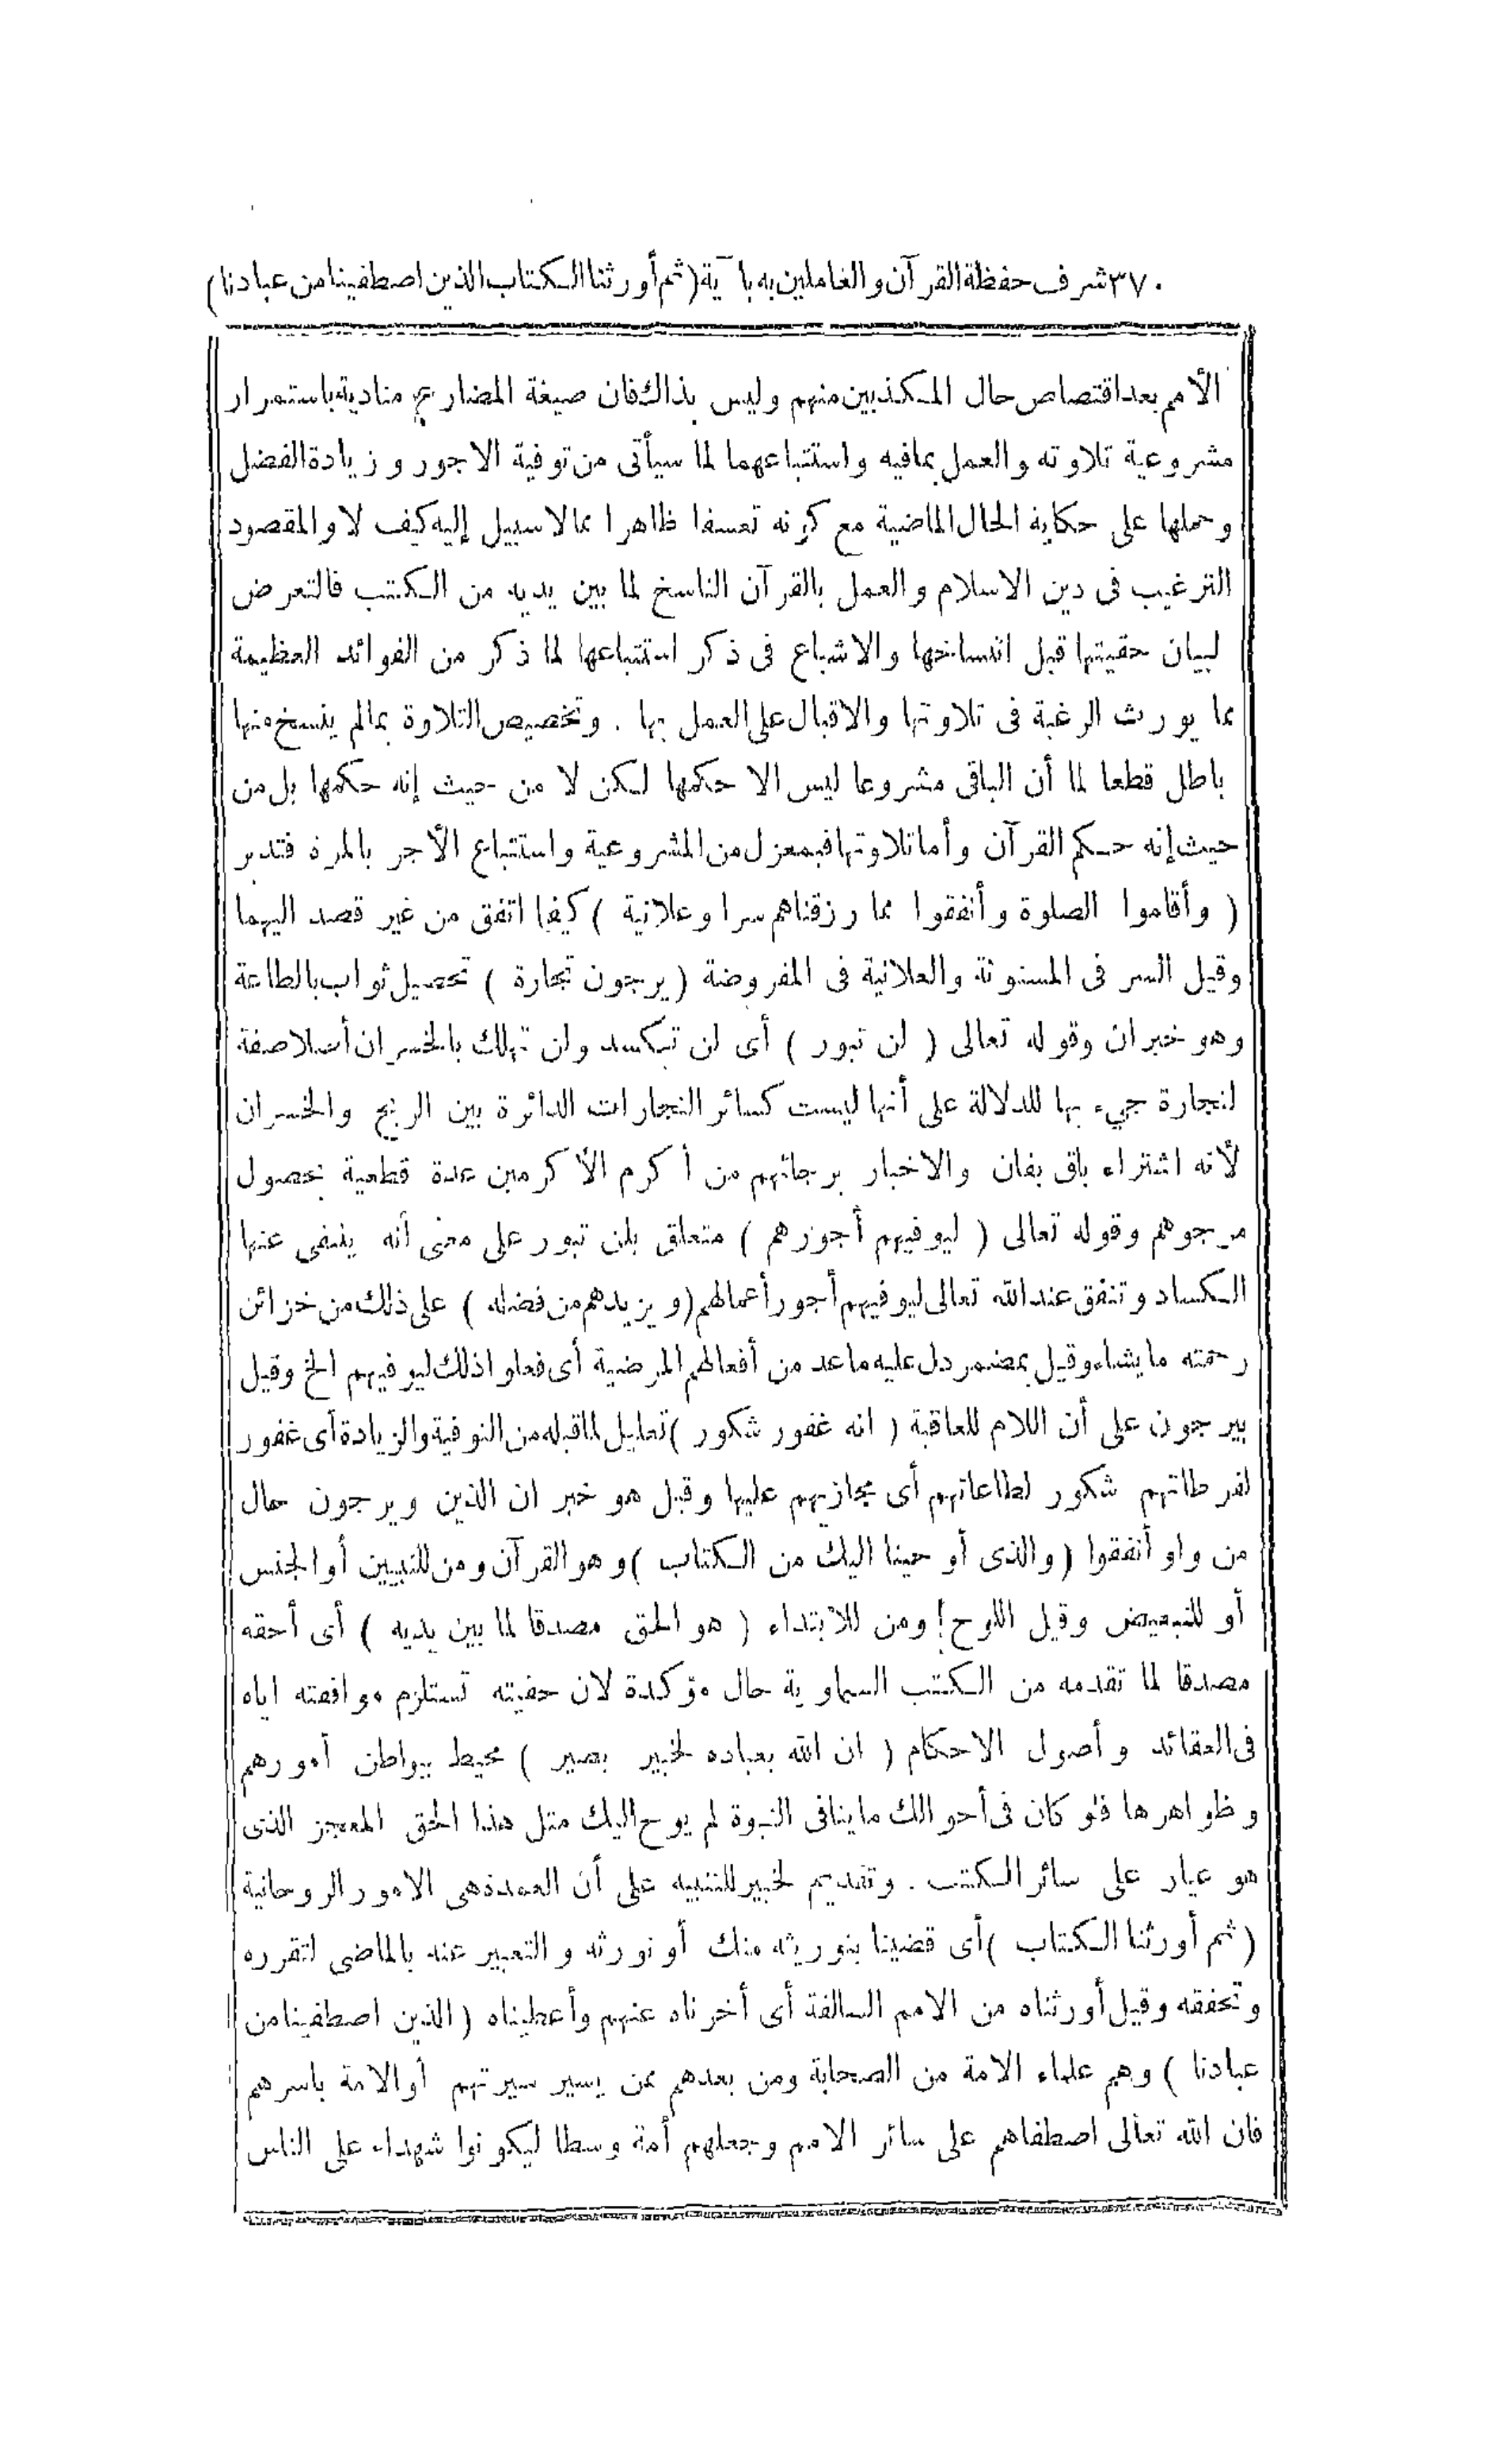 ٣٧٠ شرف حفظة القرآن والعاملين به بآية (ثم أورثنا الكتاب الذين اصطفينا من عبادنا)
الأمم بعد اقتصاص حال المكذبين منهم وليس بذاك فان صيغة المضارع منادية باستمرار
مشروعية تلاوته والعمل بمافيه واستتباعهما لما سيأتى من توفية الاجور وزيادة الفضل
وحملها على حكاية الحال الماضية مع كونه تعسفا ظاهرا مما لاسبيل إليه كيف لا والمقصود
الترغيب فى دين الاسلام والعمل بالقرآن الناسخ لما بين يديه من الكتب فالتعرض
لبيان حقيتها قبل انتساخها والاشباع فى ذكر استتباعها لما ذكر من الفوائد العظيمة
مما يورث الرغبة فى تلاوتها والاقبال على العمل بها . وتخصيص التلاوة بمالم ينسخ منها
باطل قطعا لما أن الباقى مشروعا ليس الا حكمها لكن لا من حيث إنه حكمها بل من
حيث إنه حكم القرآن وأما تلاوتها فبمعزل من المشروعية واستتباع الأجر بالمرة فتدبر
( وأقاموا الصلوة وأنفقوا مما رزقناهم سرا وعلانية ) كيفما اتفق من غير قصد اليهما
وقيل السر فى المسنونة والعلانية فى المفروضة ( يرجون تجارة ) تحصيل ثواب بالطاعة
وهو خبر ان وقوله تعالى ( لن تبور ) أى لن تكسد ولن تهلك بالخسران أصلا صفة
لتجارة جيء بها للدلالة على أنها ليست كسائر التجارات الدائرة بين الربح والخسران
لأنه اشتراء باق بفان والاخبار برجائهم من أكرم الأكرمين عدة قطعية بحصول
مرجوهم وقوله تعالى ( ليوفيهم أجورهم ) متعلق بلن تبور على معنى أنه ينتفى عنها
الكساد وتنفق عند الله تعالى ليوفيهم أجور أعمالهم (ويزيدهم من فضله ) على ذلك من خزائن
رحمته مايشاء وقيل بمضمر دل عليه ماعد من أفعالهم المرضية أى فعلوا ذلك ليوفيهم الخ وقيل
بيرجون على أن اللام للعاقبة ( انه غفور شكور ) تعليل لماقبله من التوفية والزيادة أى غفور
لفرطاتهم شكور لطاعاتهم أى مجازيهم عليها وقيل هو خبر ان الذين ويرجون حال
من واو أنفقوا ( والذى أوحينا اليك من الكتاب ) وهو القرآن ومن للتبيين أو الجنس
أو للتبعيض وقيل اللوح ! ومن للابتداء ( هو الحق مصدقا لما بين يديه ) أى أحقه
مصدقا لما تقدمه من الكتب السماوية حال مؤكدة لان حقيته تستلزم موافقته اياه
فى العقائد وأصول الاحكام ( ان الله بعباده لخبير بصير ) محيط ببواطن أمورهم
وظواهرها فلو كان فى أحوالك ماينافى النبوة لم يوح اليك مثل هذا الحق المعجز الذى
هو عيار على سائر الكتب . وتقديم لخبير للتنبيه على أن العمدة هى الامور الروحانية
( ثم أورثنا الكتاب ) أى قضينا بتوريثه منك أو نورثه والتعبير عنه بالماضى لتقرره
وتحققه وقيل أورثناه من الامم السالفة أى أخرناه عنهم وأعطيناه ( الذين اصطفينا من
عبادنا ) وهم علماء الامة من الصحابة ومن بعدهم ممن يسير سيرتهم أو الامة باسرهم
فان الله تعالى اصطفاهم على سائر الامم وجعلهم أمة وسطا ليكونوا شهداء على الناس